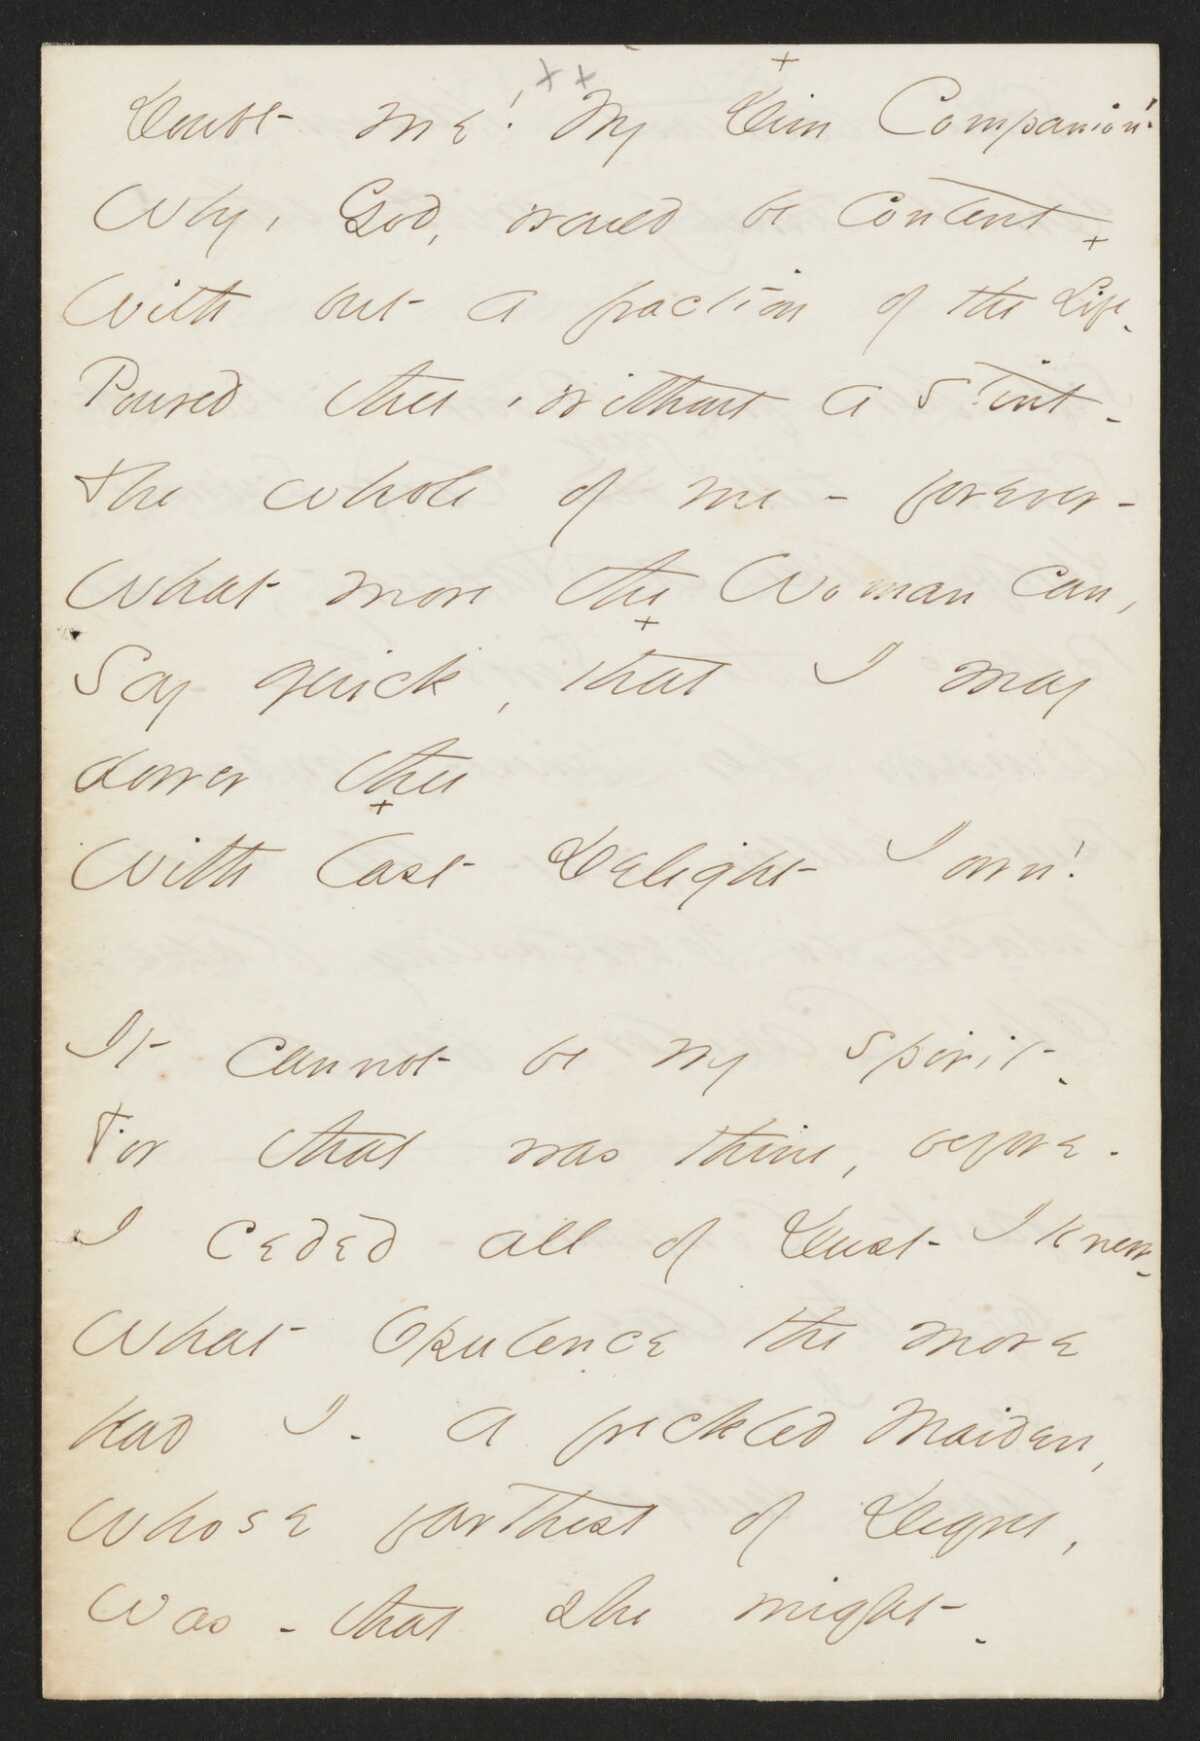 Doubt me! My Dim Companion!
Why, God, would be content
With but a fraction of the Life -
Poured thee, without a stint -
The whole of me - forever -
What more the Woman can,
Say quick, that I may
dower thee
With last Delight I own!
It cannot be my spirit -
For that was thine, before -
I ceded all of Dust I knew -
What Opulence the more
Had I - a freckled Maiden,
Whose farthest of Degree,
Was - that she might -